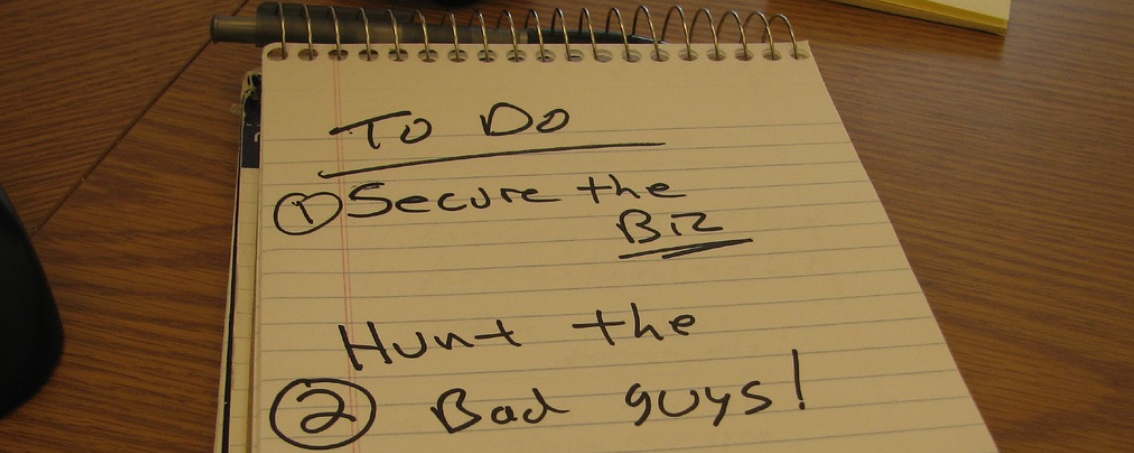 To Do
① Secure the
Biz
Hunt the
② Bad guys!